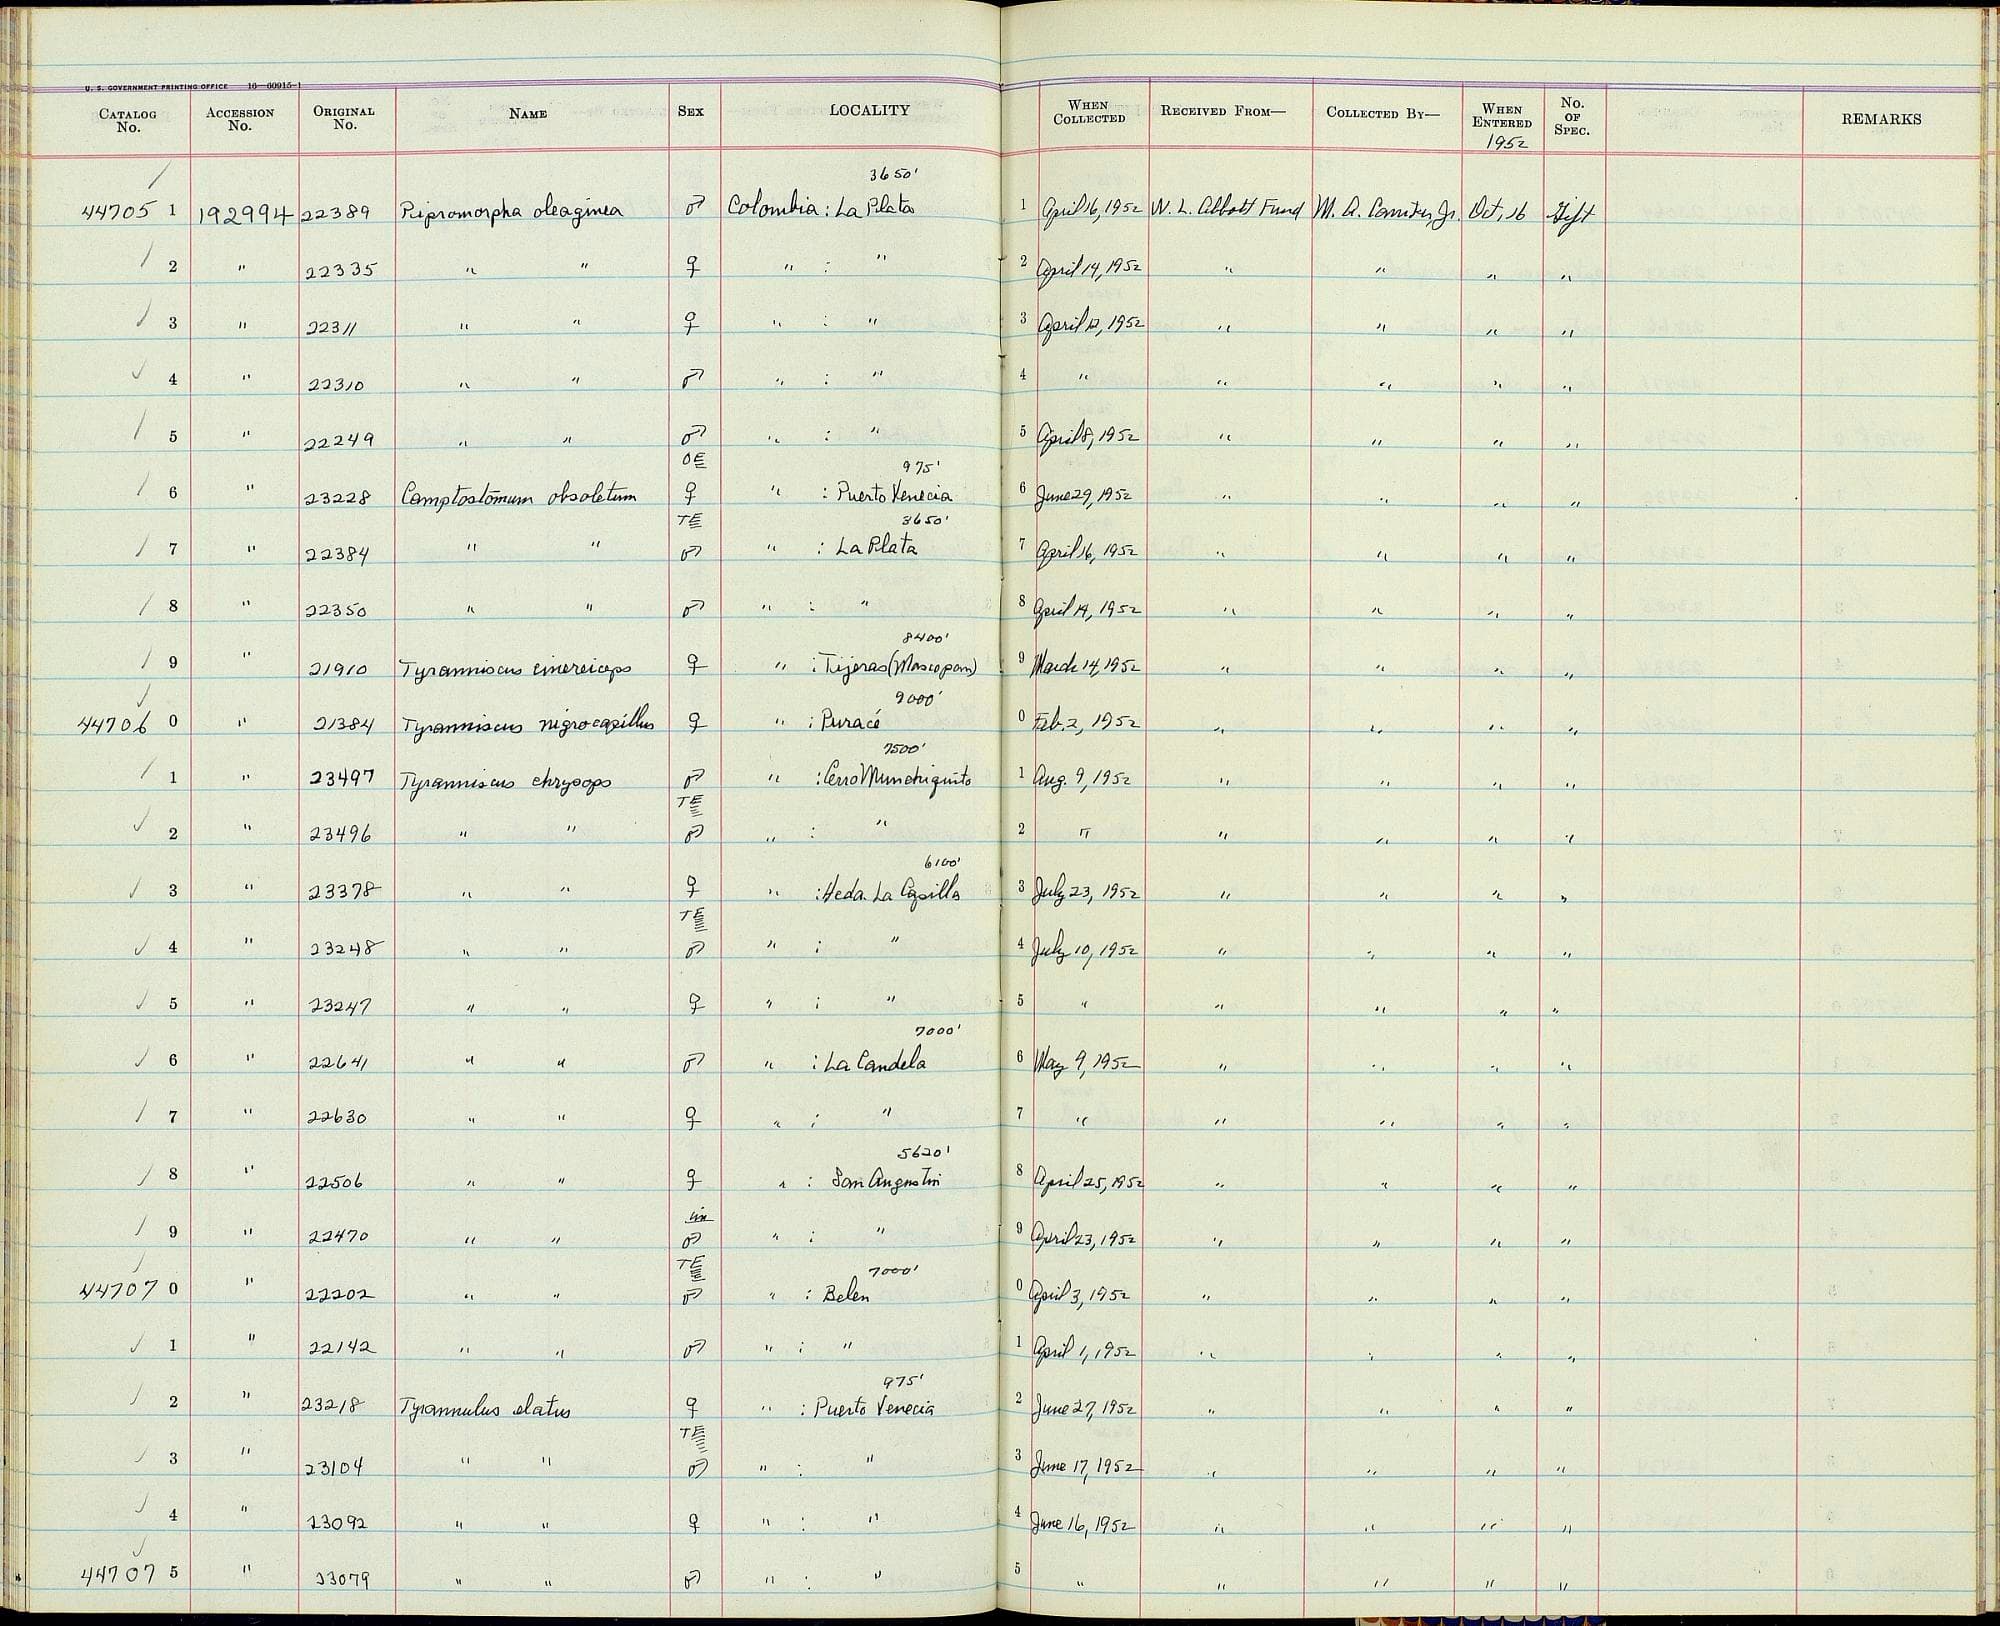 U. S. GOVERNMENT PRINTING OFFICE 16—60915-1
CATALOG No. ACCESSION No. ORIGINAL No. NAME SEX LOCALITY WHEN COLLECTED RECEIVED FROM— COLLECTED BY— WHEN ENTERED 1952 No. OF SPEC. REMARKS
3650'
44705 1 192994 22389 Pipromorpha oleaginea ♂ Colombia: La Plata 1 April 16, 1952 W. L. Abbott Fund M. A. Carriker, Jr. Oct, 16 Gift
2 " 22335 " " ♀ " : " 2 April 14, 1952 " " " "
3 " 22311 " " ♀ " : " 3 April 12, 1952 " " " "
4 " 22310 " " ♂ " : " 4 " " " " "
5 " 22249 " " ♂ " : " 5 April 8, 1952 " " " "
OE 975'
6 " 23228 Camptostomum obsoletum ♀ " : Puerto Venecia 6 June 29, 1952 " " " "
TE 3650'
7 " 22384 " " ♂ " : La Plata 7 April 16, 1952 " " " "
8 " 22350 " " ♂ " : " 8 April 14, 1952 " " " "
8400'
9 " 21910 Tyranniscus cinereiceps ♀ " : Tijeras (Moscopan) 9 March 14, 1952 " " " "
9000'
44706 0 " 21384 Tyranniscus nigrocapillus ♀ " : Puracé 0 Feb. 2, 1952 " " " "
7500'
1 " 23497 Tyranniscus chrysops ♂ " : Cerro Munchiquito 1 Aug. 9, 1952 " " " "
TE
2 " 23496 " " ♂ " : " 2 " " " " "
6100'
3 " 23378 " " ♀ " : Hcda. La Capilla 3 July 23, 1952 " " " "
TE
4 " 23248 " " ♂ " : " 4 July 10, 1952 " " " "
5 " 23247 " " ♀ " : " 5 " " " " "
7000'
6 " 22641 " " ♂ " : La Candela 6 May 9, 1952 " " " "
7 " 22630 " " ♀ " : " 7 " " " " "
5620'
8 " 22506 " " ♀ " : San Augustin 8 April 25, 1952 " " " "
im
9 " 22470 " " ♂ " : " 9 April 23, 1952 " " " "
TE 7000'
44707 0 " 22202 " " ♂ " : Belen 0 April 3, 1952 " " " "
1 " 22142 " " ♂ " : " 1 April 1, 1952 " " " "
975'
2 " 23218 Tyrannulus elatus ♀ " : Puerto Venecia 2 June 27, 1952 " " " "
TE
3 " 23104 " " ♂ " : " 3 June 17, 1952 " " " "
4 " 23092 " " ♀ " : " 4 June 16, 1952 " " " "
44707 5 " 23079 " " ♂ " : " 5 " " " " "